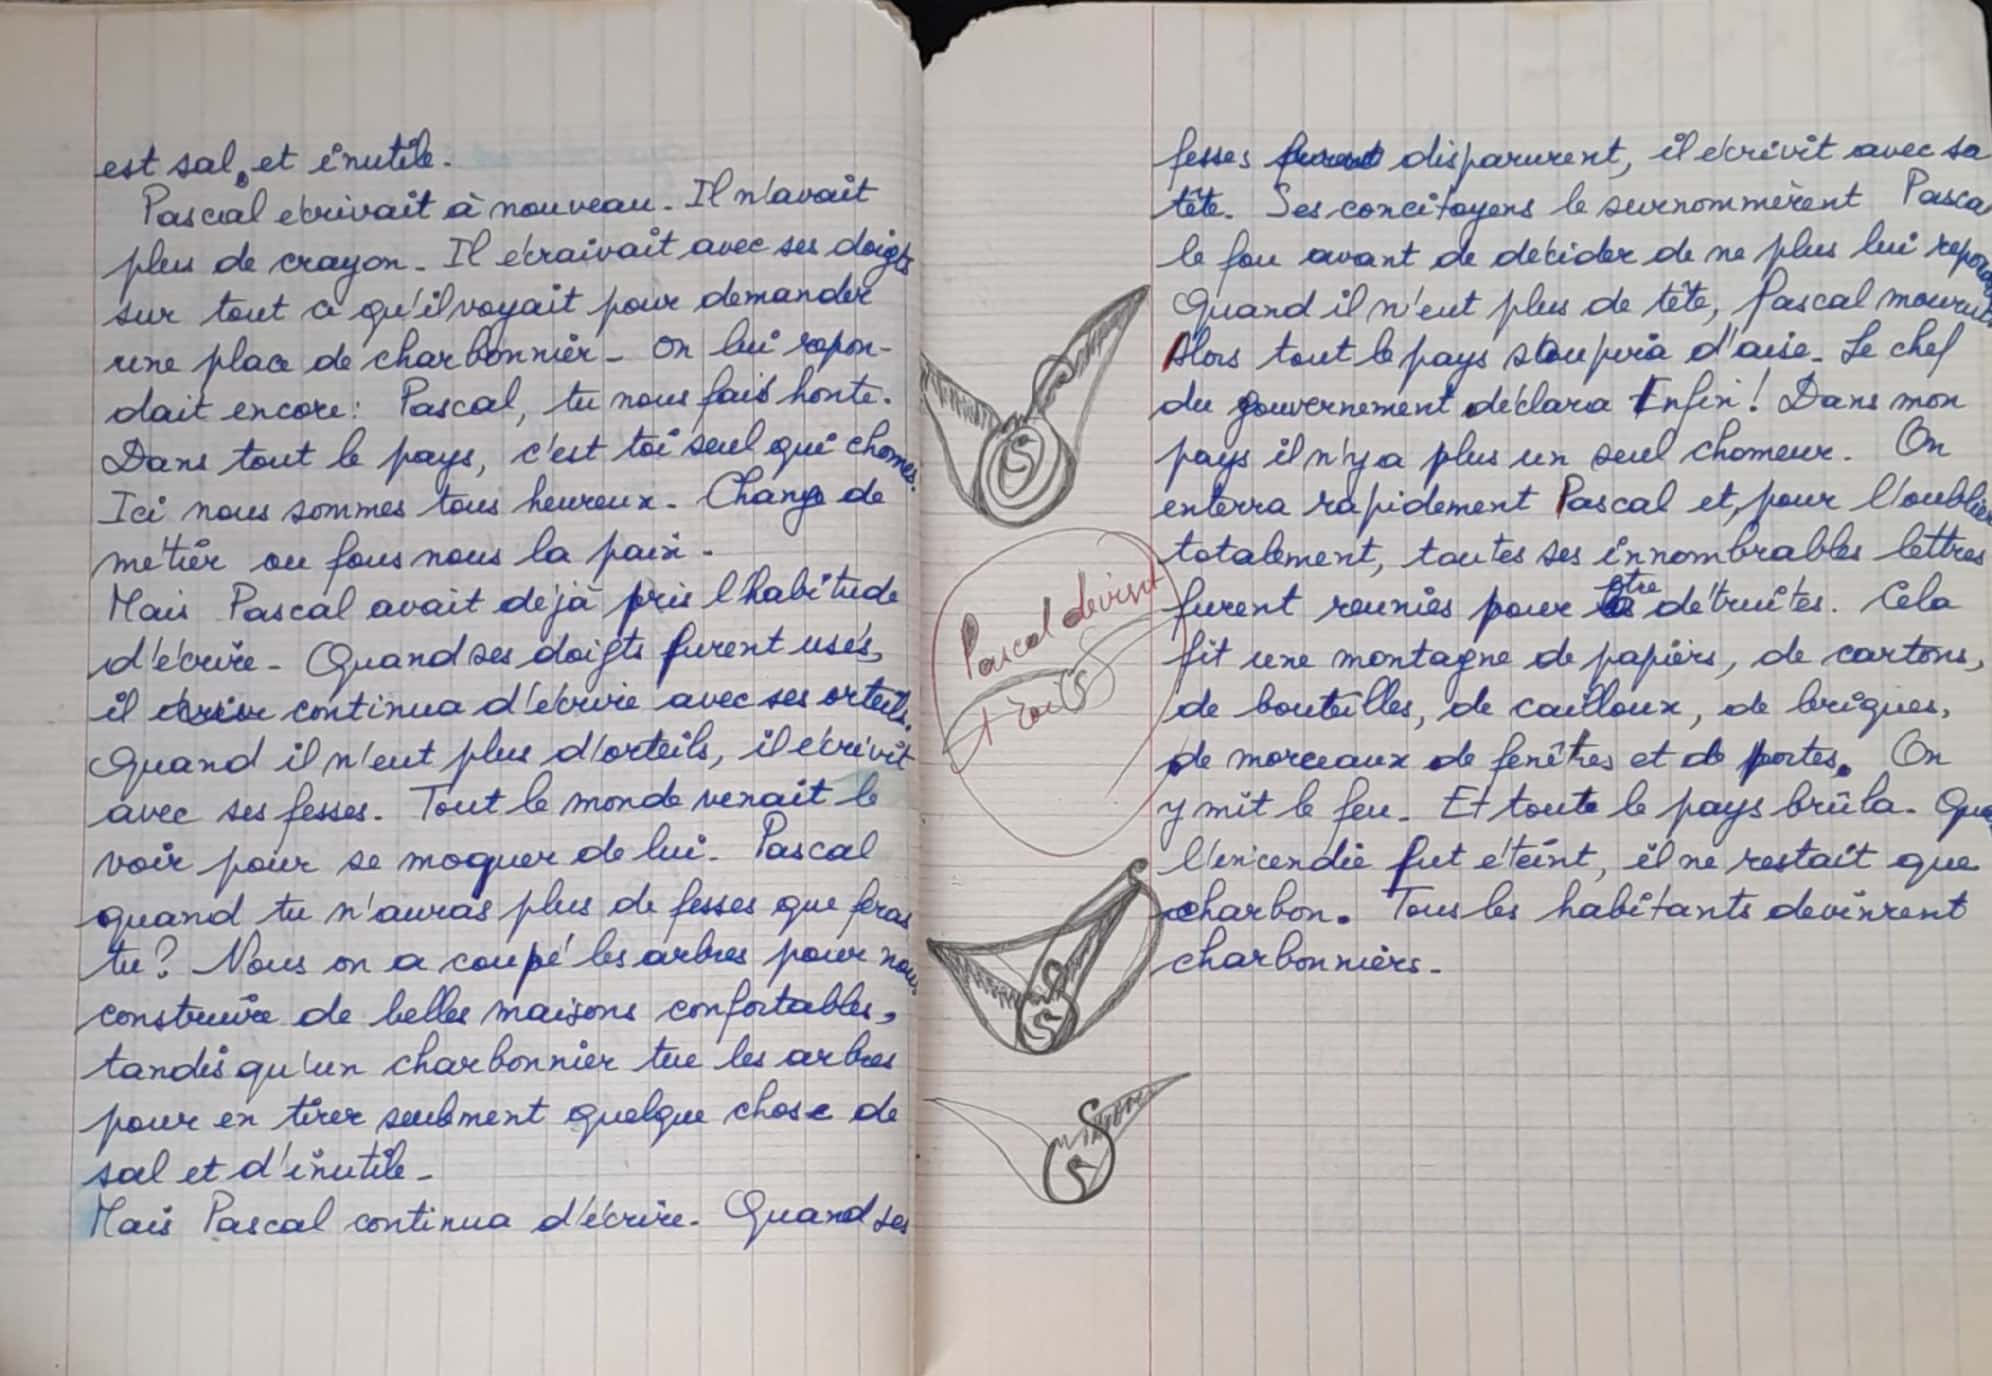 est sal, et inutile.
Pascal écrivait à nouveau. Il n'avait
plus de crayon. Il écraivait avec ses doigts
sur tout ce qu'il voyait pour demander
une place de charbonnier. On lui répon-
dait encore: Pascal, tu nous fais honte.
Dans tout le pays, c'est toi seul qui chomes.
Ici nous sommes tous heureux. Change de
métier ou fous nous la paix.
Mais Pascal avait déjà pris l'habitude
d'écrire. Quand ses doigts furent usés,
il écrive continua d'écrire avec ses orteils.
Quand il n'eut plus d'orteils, il écrivit
avec ses fesses. Tout le monde venait le
voir pour se moquer de lui. Pascal
quand tu n'auras plus de fesses que feras
tu? Nous on a coupé les arbres pour nous
construire de belles maisons confortables,
tandis qu'un charbonnier tue les arbres
pour en tirer seulement quelque chose de
sal et d'inutile.
Mais Pascal continua d'écrire. Quand ses
Pascal devient
fesses furent disparurent, il écrivit avec sa
tête. Ses concitoyens le surnommèrent Pascal
le fou avant de décider de ne plus lui répon
Quand il n'eut plus de tête, Pascal mourut
Alors tout le pays soupira d'aise. Le chef
du gouvernement déclara Enfin! Dans mon
pays il n'y a plus un seul chomeur. On
enterra rapidement Pascal et, pour l'oublier
totalement, toutes ses innombrables lettres
furent réunies pour être détruites. Cela
fit une montagne de papiers, de cartons,
de bouteilles, de cailloux, de briques,
de morceaux de fenêtres et de portes. On
y mit le feu. Et toute le pays brûla. Qua
l'incendie fut éteint, il ne restait que
charbon. Tous les habitants devinrent
charbonniers.
S
S
S